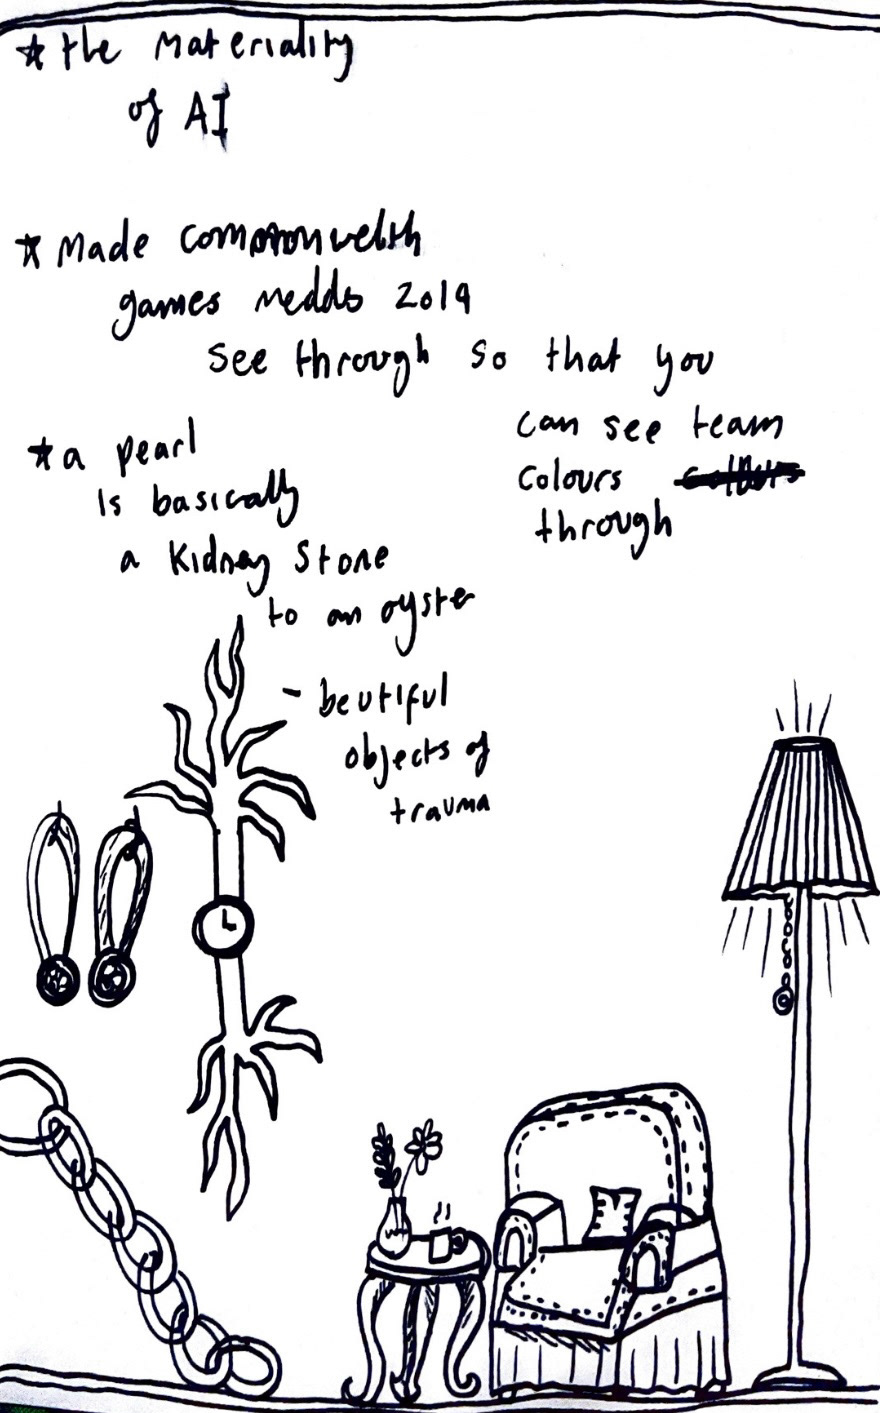 * the Materiality
of AI
* Made commonwelth
games medds 2019
see through so that you
can see team
colours
through
* a pearl
is basically
a Kidney Stone
to an oyster
- beutiful
objects of
trauma